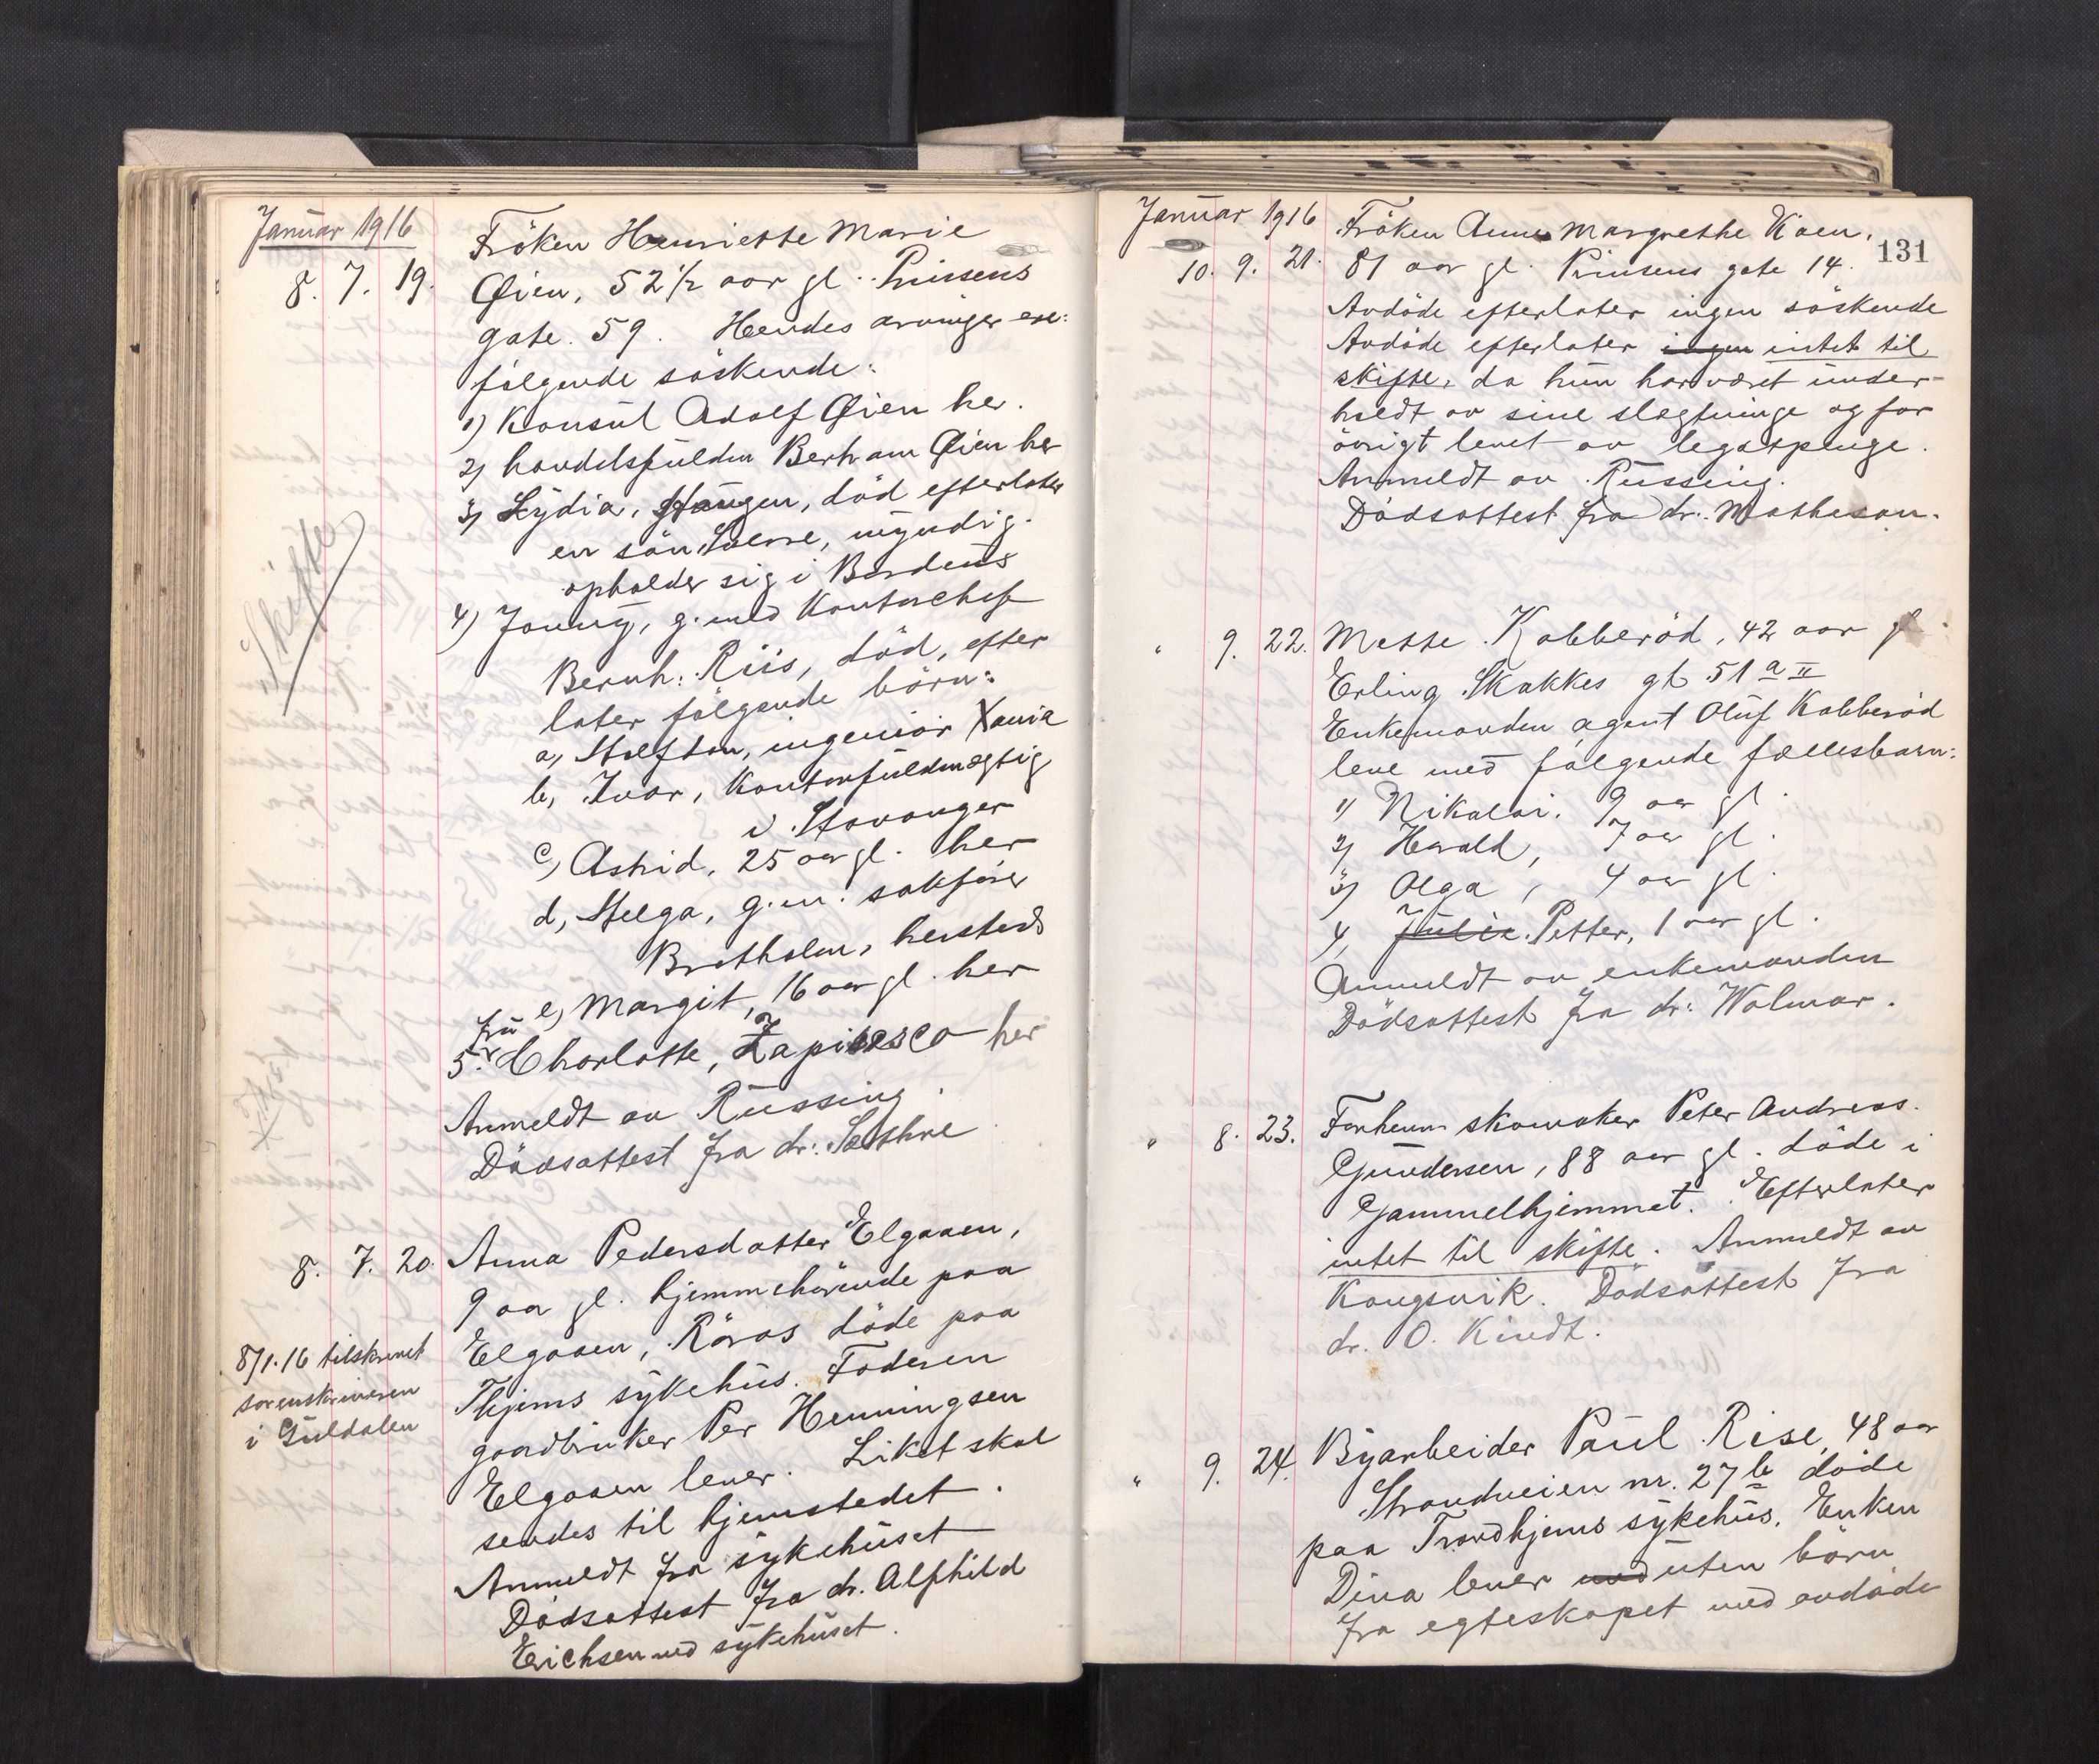 Januar 1916
8. 7. 19. Fröken Henriette Marie
Øien, 52 1/2 aar gl. Prinsens
gate. 59. Hendes arvinger ere:
følgende söskende:
1) Konsul Adolf Øien her.
2) handelsfuldm Bertram Øien her
3) Lydia, Haugen, död efterlater
en sön, myndig.
opholder sig i Bordeaus
4) Jonny, g. med Kontorchef
Bernh. Riis, död, efter
later fölgende börn:
a, ingeniör Xania
b, Ivar, Kontorfuldmægtig
i Stavanger
c, Astrid, 25 aar gl. her
d, Helga, g.m. sakförer
Bratholm, hersteds
e, Margit, 16 aar gl. her
fru
5. Charlotte, Zapi her
Anmeldt av Rüssing.
Dödsattest fra dr. Sæthre
Skifte
8. 7. 20. Anna Pedersdatter Elgaaen,
9 aar gl. hjemmehörende paa
Elgaaen, Röros döde paa
Thjems sykehus. Faderen
gaardbruker Per Henningsen
Elgaaen lever. Liket skal
sendes til hjemstedet.
Anmeldt fra sykehuset
Dödsattest fra dr. Alfhild
Erichsen ved sykehuset.
8/1.16 tilskrevet
sorenskriveren
i Guldalen
Januar 1916
131
10. 9. 21. Fröken Anne Margrethe Koen,
81 aar gl. Prinsens gate 14.
Avdöde efterlater ingen söskende
Avdöde efterlater ingen intet til
skifte, da hun har været under-
holdt av sine slegtninge og for
övrigt levet av legatpenge.
Anmeldt av Rüssing.
Dödsattest fra dr. Matheson.
" 9. 22. Mette Kobberöd, 42 aar gl
Erling Skakkes gt 51 a II
Enkemanden agent Oluf Kobberöd
leve med fölgende fællesbarn:
1) Nikolai. 9 aar gl.
2) Harald, 7 aar gl.
3) Olga, 4 aar gl.
4, Julie. Petter, 1 aar gl.
Anmeldt av enkemanden
Dödsattest fra dr: Wolmar.
" 8. 23. Forhenv skomaker Peter Andreas
Gundersen, 88 aar gl. döde i
Gammelhjemmet. Efterlater
intet til skifte. Anmeldt av
Kongsvik. Dödsattest fra
dr. O. Kindt.
" 9. 24. Byarbeider Paul Rise, 48 aar
Strandveien nr. 27 b döde
paa Trondhjems sykehus. Enken
Dina lever med uten börn
fra egteskapet med avdöde